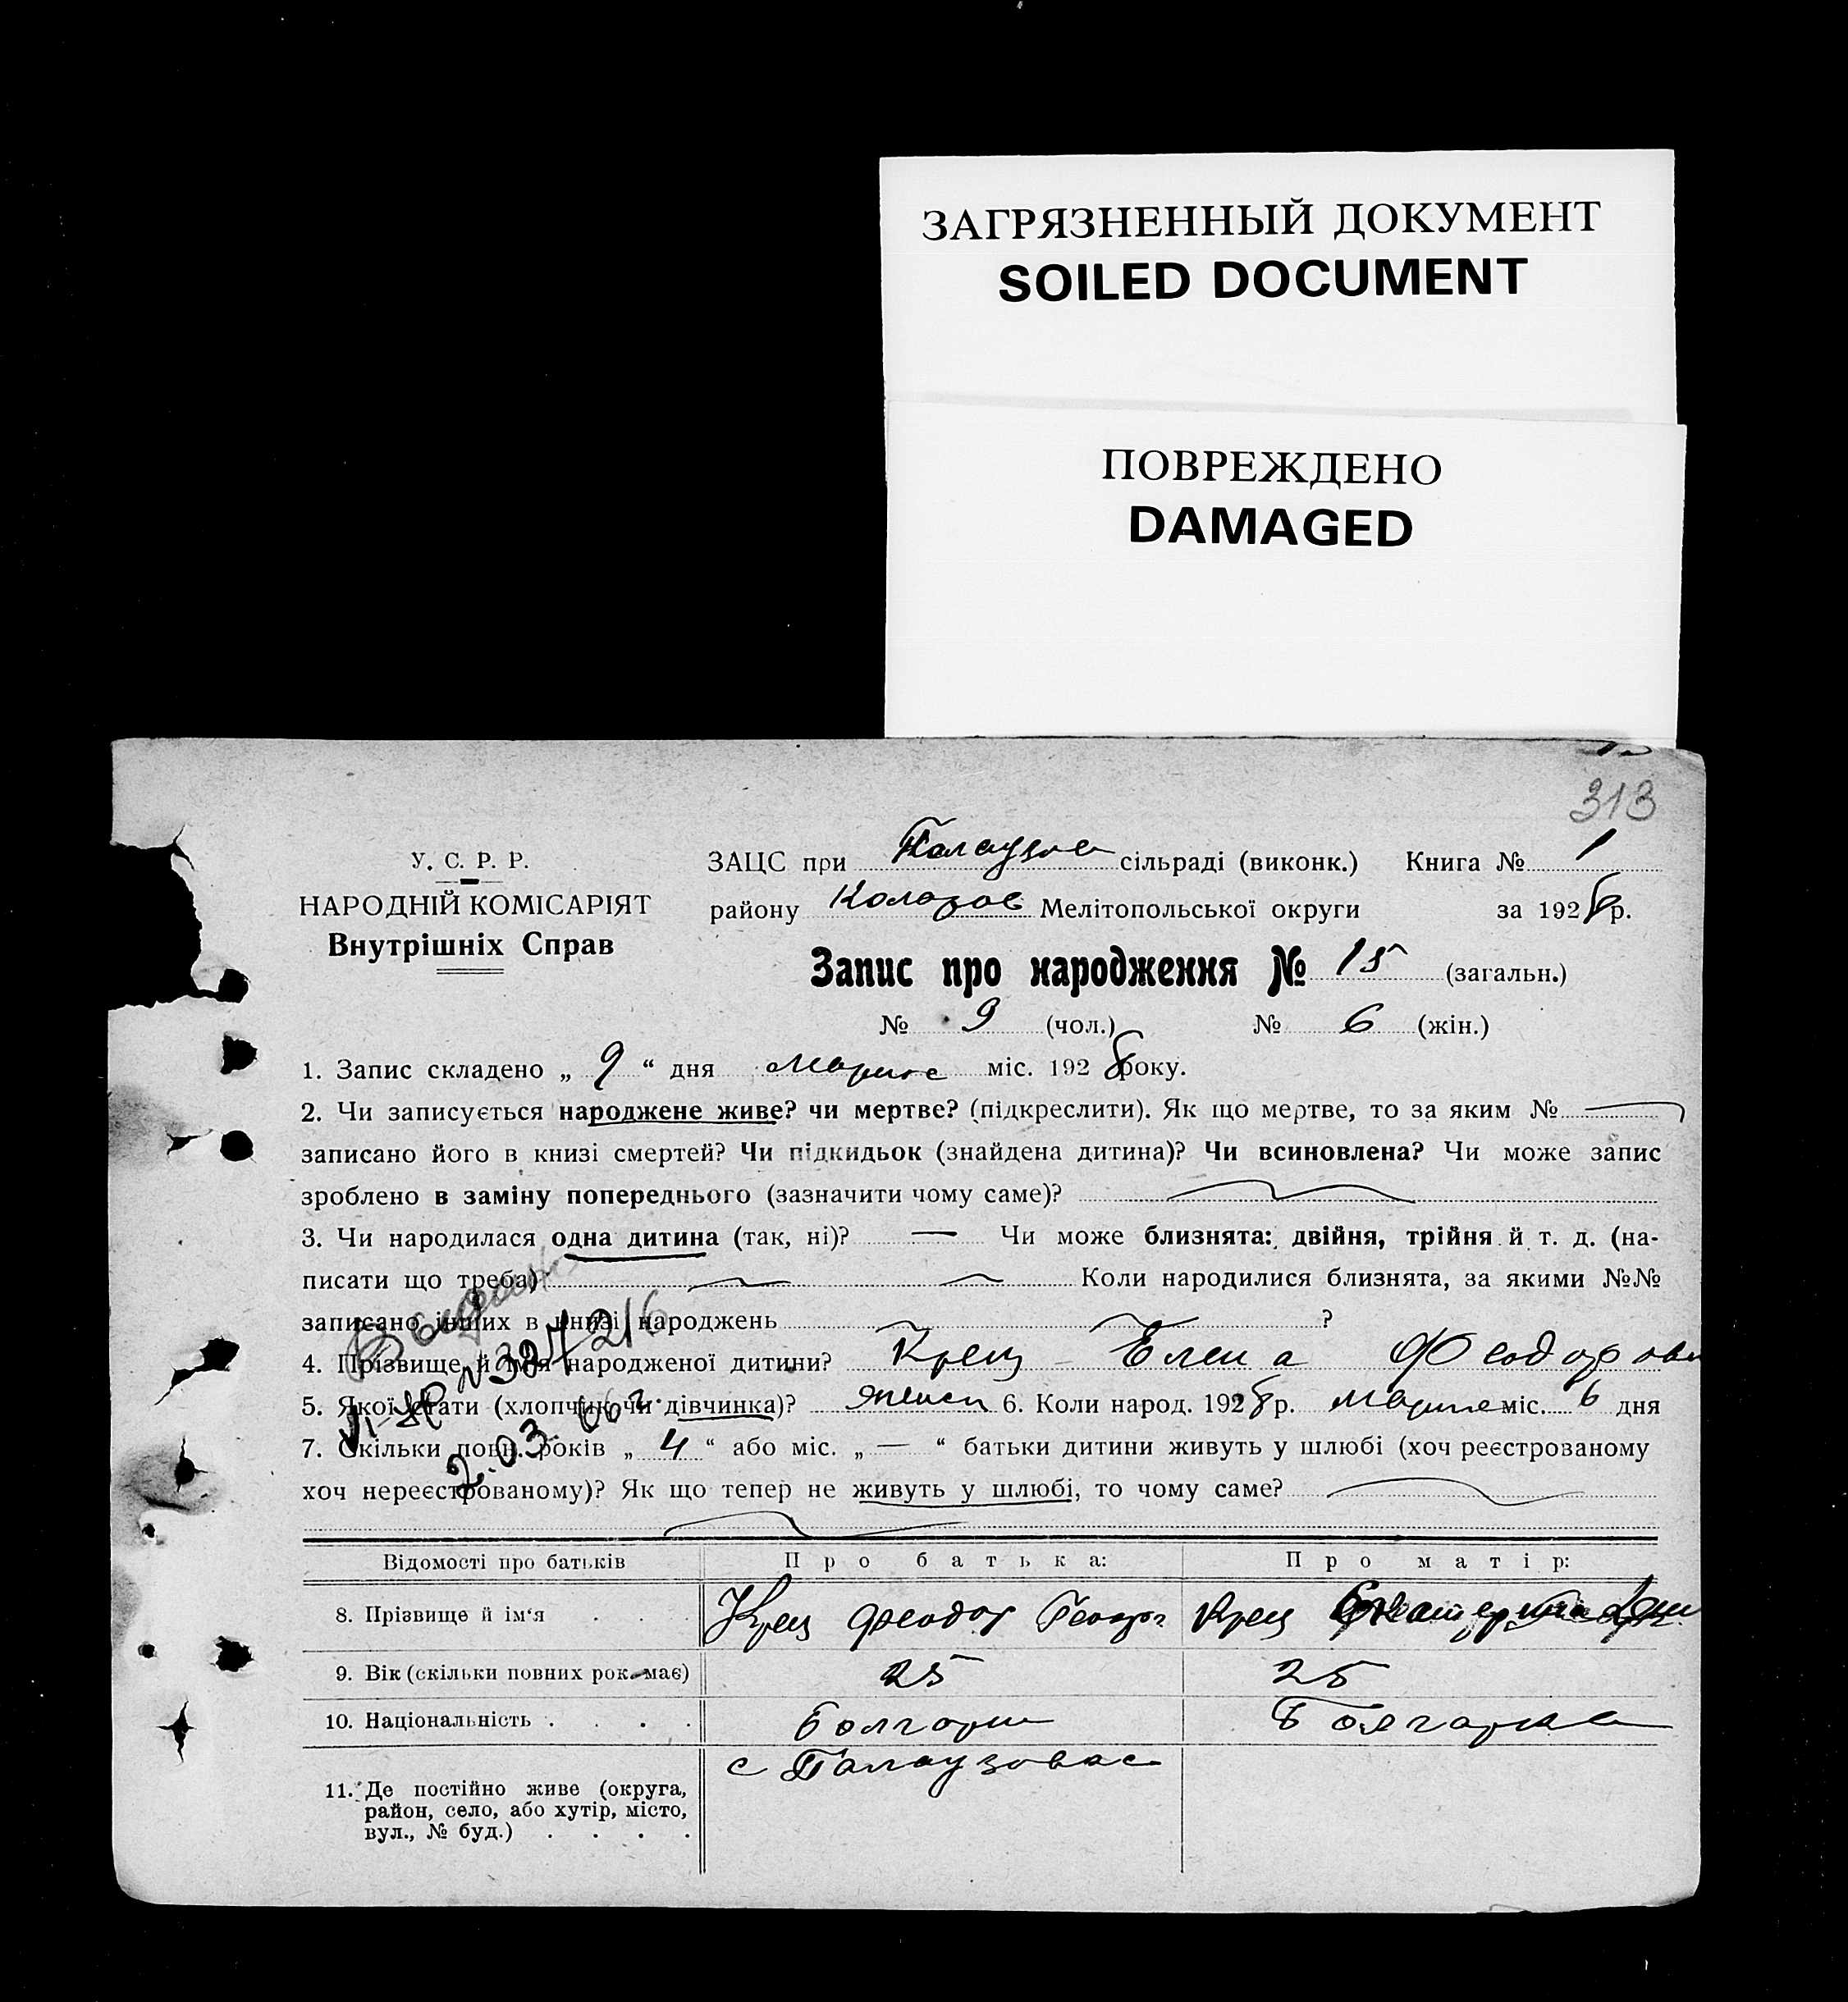 ЗАГРЯЗНЕННЫЙ ДОКУМЕНТ
SOILED DOCUMENT
ПОВРЕЖДЕНО
DAMAGED
313
У. С. Р. Р.
НАРОДНІЙ КОМІСАРІЯТ
Внутрішніх Справ
ЗАЦС при Палаузов сільраді (виконк.) Книга № 1
району Коларов Мелітопольської округи за 1928 р.
Запис про народження № 15 (загальн.)
№ 9 (чол.) № 6 (жін.)
1. Запис складено „ 9 “ дня марта міс. 1928 року.
2. Чи записується народжене живе? чи мертве? (підкреслити). Як що мертве, то за яким № —
записано його в книзі смертей? Чи підкидьок (знайдена дитина)? Чи всиновлена? Чи може запис
зроблено в заміну попереднього (зазначити чому саме)?
3. Чи народилася одна дитина (так, ні)? — Чи може близнята: двійня, трійня й т. д. (на-
писати що треба) Коли народилися близнята, за якими №№
записано інших в книзі народжень ?
4. Прізвище й ім'я народженої дитини? Крец - Елена Феодоровн
5. Якої стати (хлопчик чи дівчинка)? женск 6. Коли народ. 1928 р. марта міс. 6 дня
7. Скільки повн. років „ 4 “ або міс. „ — “ батьки дитини живуть у шлюбі (хоч реєстрованому
хоч нереєстрованому)? Як що тепер не живуть у шлюбі, то чому саме?
№ 327216
2.03.66 г.
Відомості про батьків Про батька: Про матір:
8. Прізвище й ім'я . . . Крец Феодор Георг Крец
9. Вік (скільки повних рок. має) 25 25
10. Національність . . . . Болгарин Болгарка
с Палаузовка
11. Де постійно живе (округа,
район, село, або хутір, місто,
вул., № буд.) . . . .